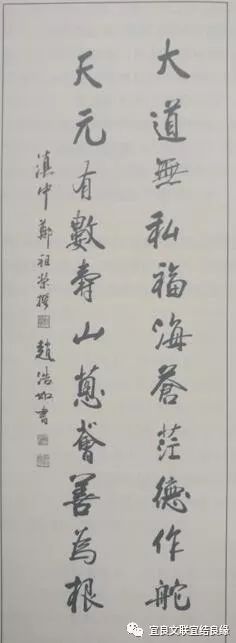 大道無私福海蒼茫德作舵
天元有數壽山蔥奮善為根
滇中鄭祖榮撰 趙浩如書
宜良文联宜结良缘